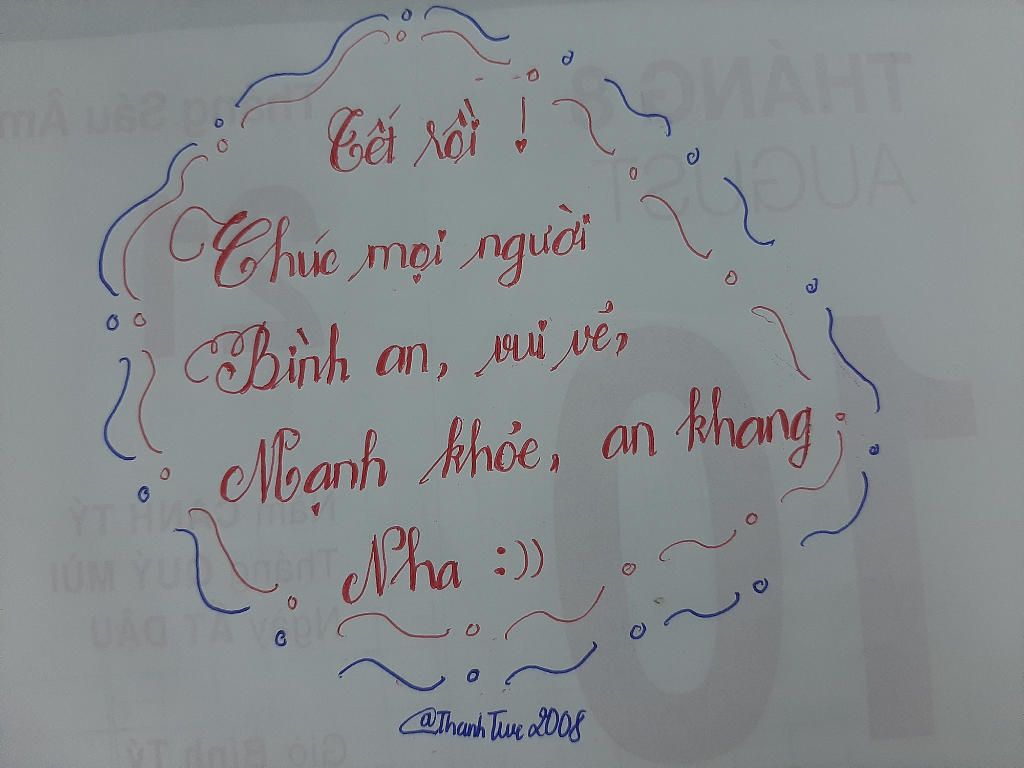 Tết rồi !
Chúc mọi người
Bình an, vui vẻ,
Mạnh khỏe, an khang
Nha :))
@ThanhTuc2008
THÁNG 8
AUGUST
Tháng Sáu Âm
21
10
Năm CANH TÝ
Tháng QUÝ MÙI
Ngày ẤT DẬU
Giờ Bính Tý